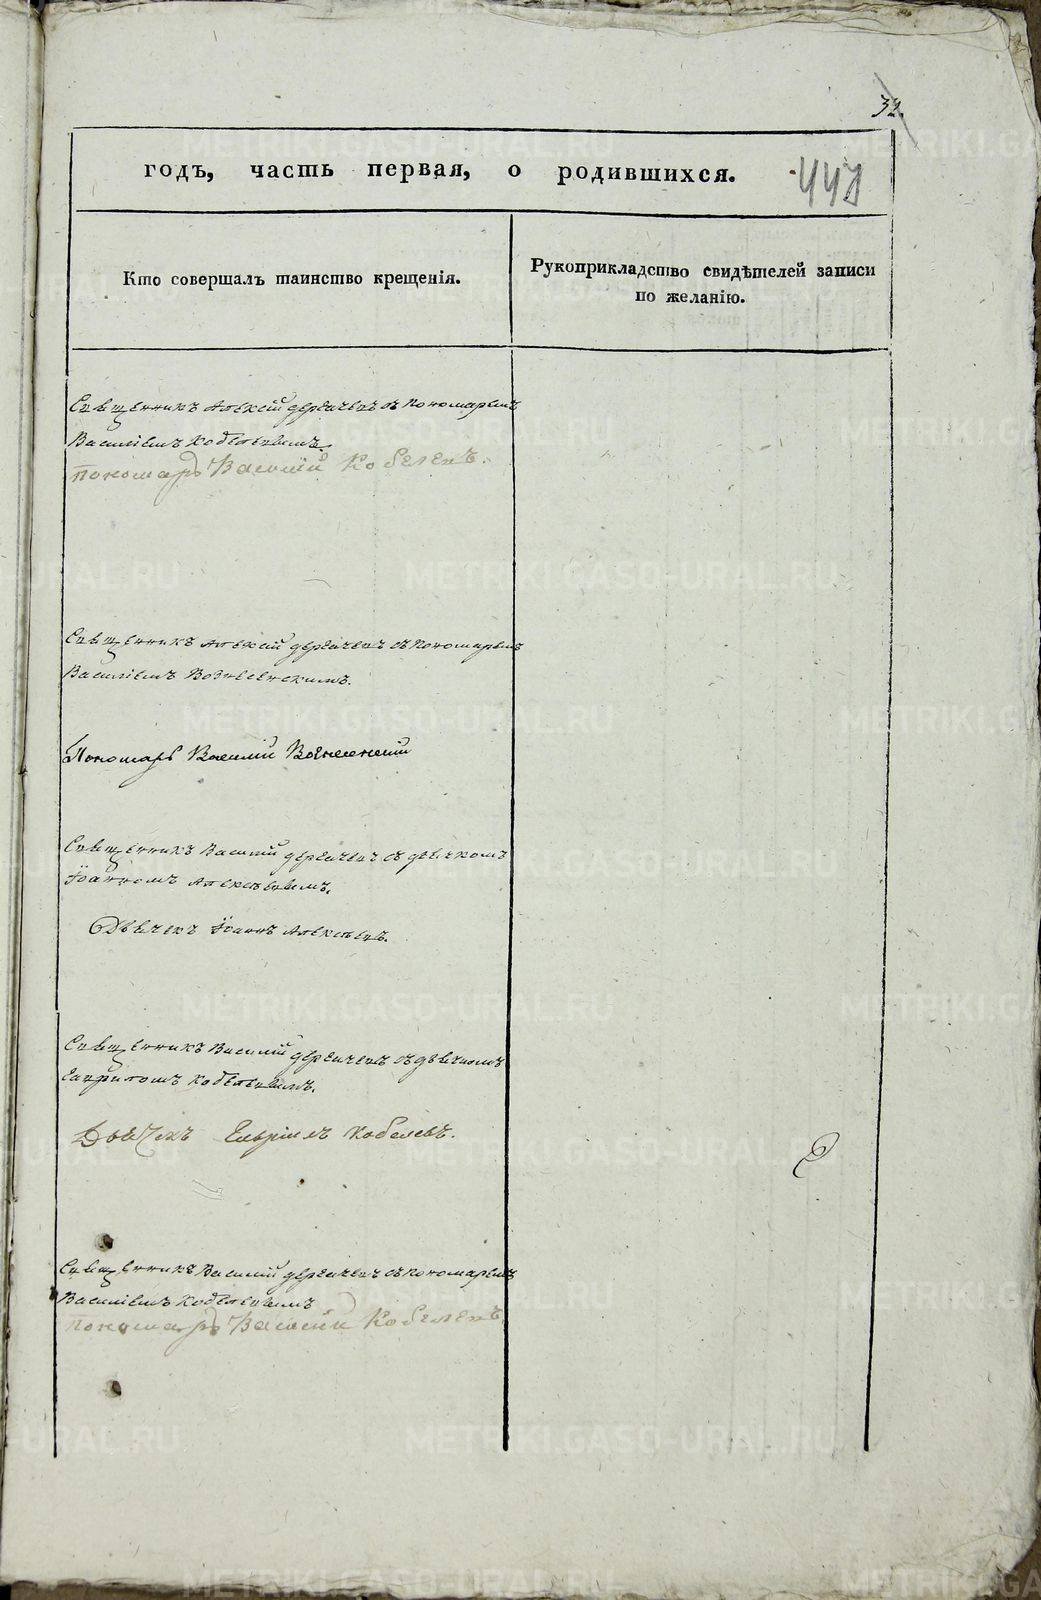 32.
годъ, часть первая, о родившихся.
447
Кто совершалъ таинство крещенія.
Рукоприкладство свидѣтелей записи
по желанію.
Священникъ Алексій Дергачевъ съ Пономаремъ
Василіемъ Кобелевымъ.
Пономарь Василій Кобелевъ.
Священникъ Алексій Дергачевъ съ Пономаремъ
Василіемъ Вознесенскимъ.
Пономарь Василій Вознесенскій
Священникъ Василій Дергачевъ съ дьячкомъ
Іоанномъ Алексѣевымъ.
Дьячекъ Іоаннъ Алексѣевъ.
Священникъ Василій Дергачевъ съ дьячкомъ
Гавриломъ Кобелевымъ.
Дьячекъ Гавріилъ Кобелевъ.
Священникъ Василій Дергачевъ съ Пономаремъ
Василіемъ Кобелевымъ
Пономарь Василій Кобелевъ
METRIKI.GASO-URAL.RU